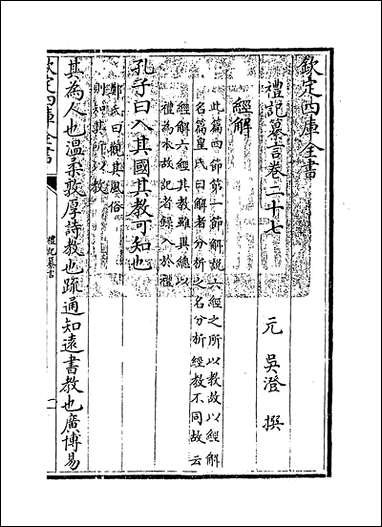 欽定四庫全書
禮記纂言卷二十七
元 吳澄 撰
經解
此篇西節第一節解說六經之所以教故以經解
名篇皇氏曰解者分析之名分析經教不同故云
經解六經其教雖異總以
禮為本故記者録入於禮
孔子曰入其國其教可知也
鄭氏曰觀其風俗
則知其所以教
其為人也温柔敦厚詩教也疏通知遠書教也廣博易
欽定四庫全書
禮記纂言